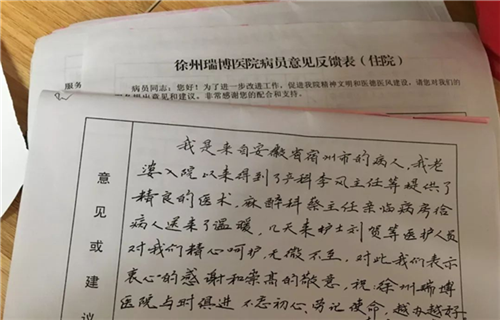 徐州瑞博医院病员意见反馈表（住院）
服务
病员同志：您好！为了进一步改进工作，促进我院精神文明和医德医风建设，请您对我们的
提出意见和建议，非常感谢您的配合和支持。
意见或建议
我是来自安徽省宿州市的病人，我老
婆入院以来得到了产科李凤主任等提供了
精良的医术，麻醉科蔡主任亲临病房给
病人送来了温暖，几天来护士刘贺等医护人员
对我们精心呵护，无微不至，对此我们表示
衷心的感谢和崇高的敬意，祝：徐州瑞博
医院与时俱进 不忘初心，牢记使命，越办越好